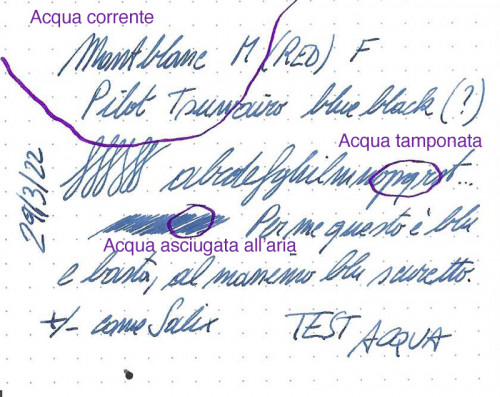 Acqua corrente
Montblanc M (RED) F
Pilot Tsunairo blue black (?)
Acqua tamponata
abcdefghilmnopqrst...
29/3/22
Acqua asciugata all'aria
Per me questo è blu
e basta, al massimo blu scuretto.
+/- come Salix
TEST ACQUA